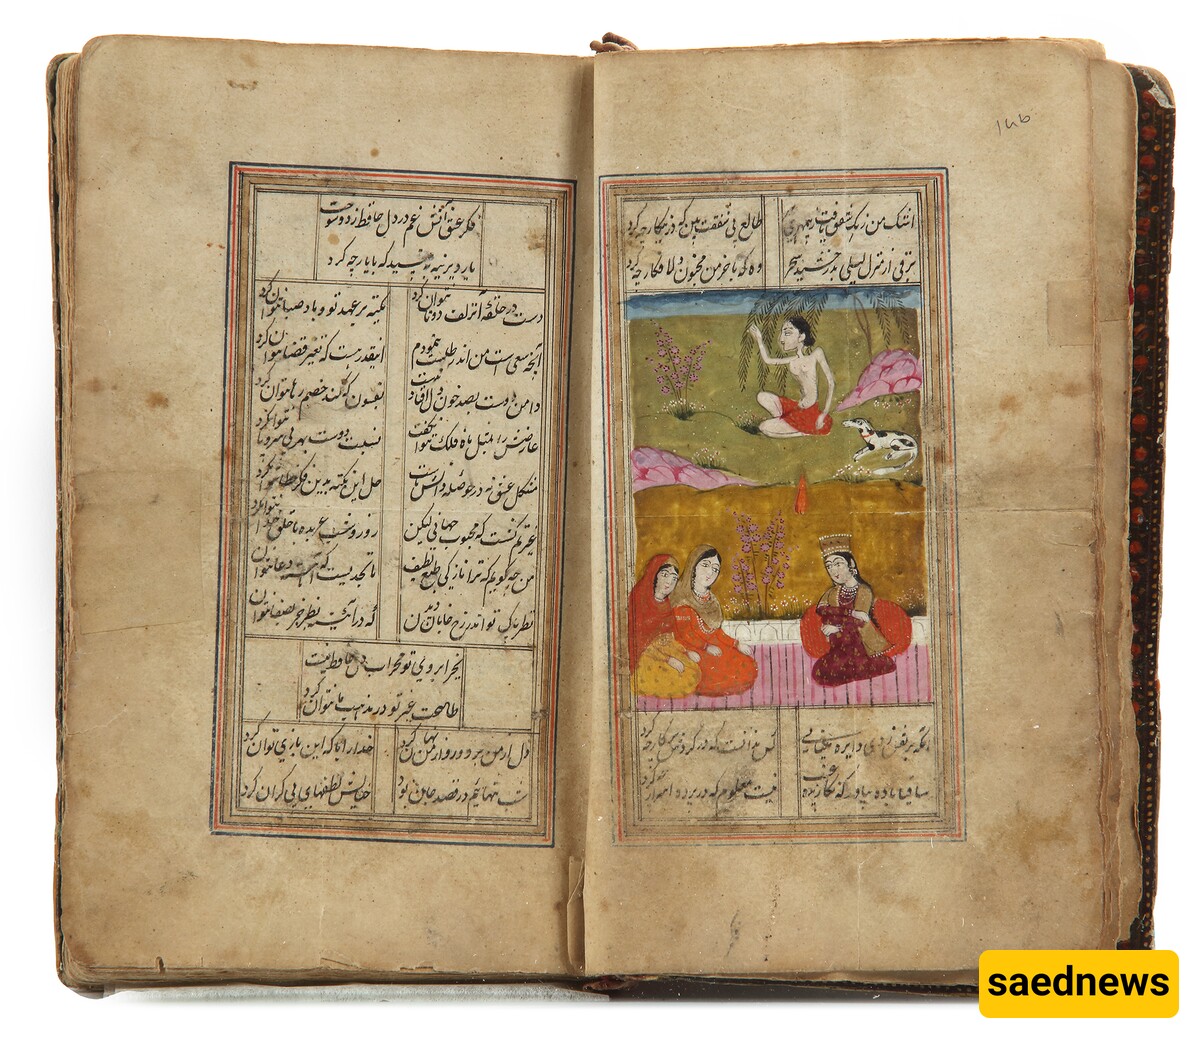 ۱۴۵
اشک من رنگ شفق یافت ز بی مهری یار طالع بی شفقت بین که درین کار چه کرد
برقی از منزل لیلی بدرخشید سحر وه که با خرمن مجنون دل افکار چه کرد
آنکه پرنقش زد این دایره مینایی کس ندانست که در گردش پرکار چه کرد
ساقیا باده بیاور که نگارنده غیب نیست معلوم که در پرده اسرار چه کرد
فکر عشق آتش غم در دل حافظ زد و سوخت
یار دیرینه ببینید که با یار چه کرد
دست در حلقه آن زلف دوتا نتوان کرد تکیه بر عهد تو و باد صبا نتوان کرد
آنچه سعی است من اندر طلبت بنمودم اینقدر هست که تغییر قضا نتوان کرد
دامن دوست بصد خون دل افتاد بدست بفسون که کند خصم رها نتوان کرد
عارضش را بمثل ماه فلک نتوان گفت نسبت دوست بهر بی سر و پا نتوان کرد
مشکل عشق نه در حوصله دانش ماست حل این نکته بدین فکر خطا نتوان کرد
غیرتم کشت که محبوب جهانی لیکن روز و شب عربده با خلق خدا نتوان کرد
من چه گویم که ترا نازکی طبع لطیف تا بحدیست که آهسته دعا نتوان کرد
نظر پاک تواند رخ جانان دیدن که در آئینه نظر جز بصفا نتوان کرد
بجز ابروی تو محراب دل حافظ نیست
طاعت غیر تو در مذهب ما نتوان کرد
دل از من برد و روی از من نهان کرد خدا را با که این بازی توان کرد
شب تنهائیم در قصد جان بود خیالش لطفهای بی کران کرد
saednews